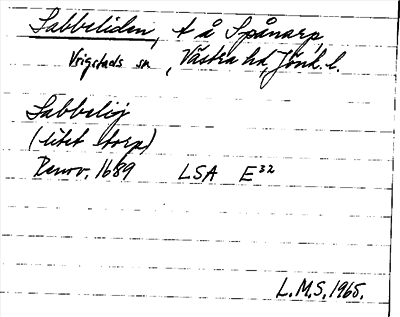 Sabbeliden, t å Spånarp,
Vrigstads sn, Västra hd, Jönk. l.
Sabbelij
(litet torp)
Renov. 1689 LSA E³²
L.M.S. 1965.